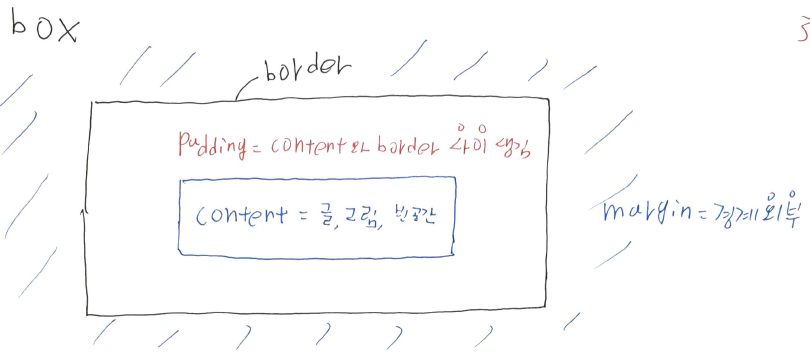 box
border
padding = content와 border 사이
content = 글, 그림, 빈공간
margin = 경계 외부